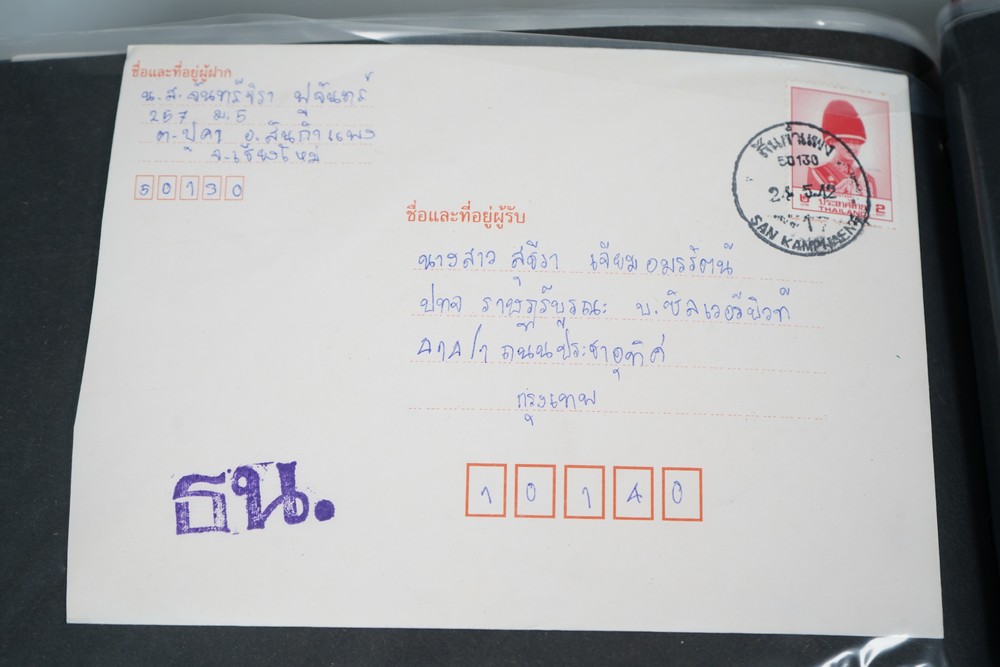 ชื่อและที่อยู่ผู้ฝาก
น.ส.จันทร์จิรา ฟูจันทร์
257 ม.5
ต.ปูคา อ.สันกำแพง
จ.เชียงใหม่
50130
สันกำแพง
50130
5 42
17
SAN KAMPHAENG
๒ ประเทศไทย 2
THAILAND
ชื่อและที่อยู่ผู้รับ
นางสาว สุธีรา เจียมอมรรัตน์
ปทจ ราษฎร์บูรณะ บ.ซิลเวอรี่บิวที
ถนนประชาอุทิศ
กรุงเทพ
10140
ธน.